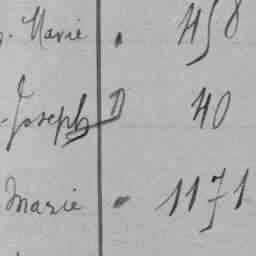 Marie . 458
-Joseph D 40
Marie - 1171